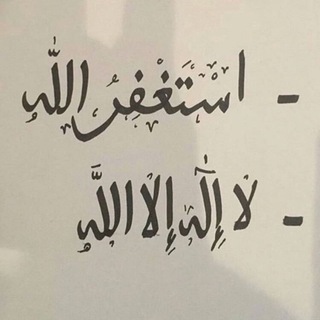 - استَغْفِرُ اللّٰه
- لا إِلٰه إِلا اللَّه